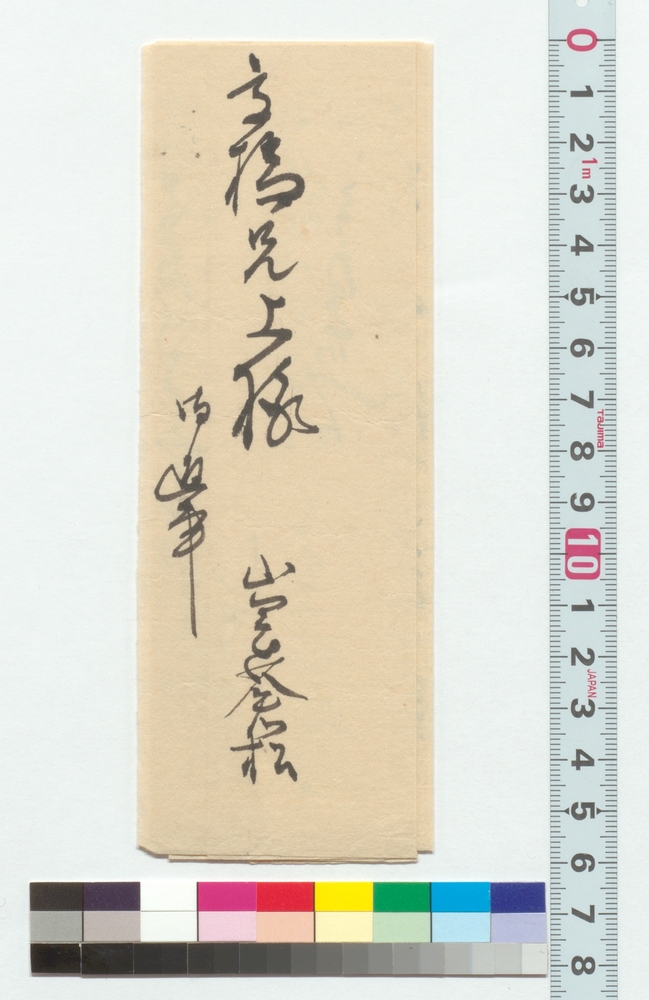 高橋兄上様
御返事
山
松
0
1
2
1m
3
4
5
6
7
Tajima
8
9
10
1
2
JAPAN
3
4
5
6
7
8